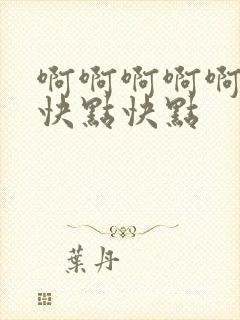 啊啊啊啊啊
快點快點
葉丹